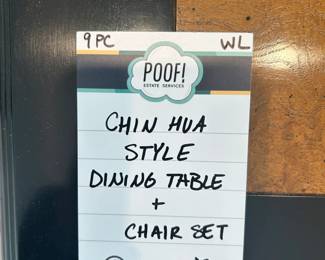 9 PC WL
POOF!
ESTATE SERVICES
CHIN HUA
STYLE
DINING TABLE
+
CHAIR SET